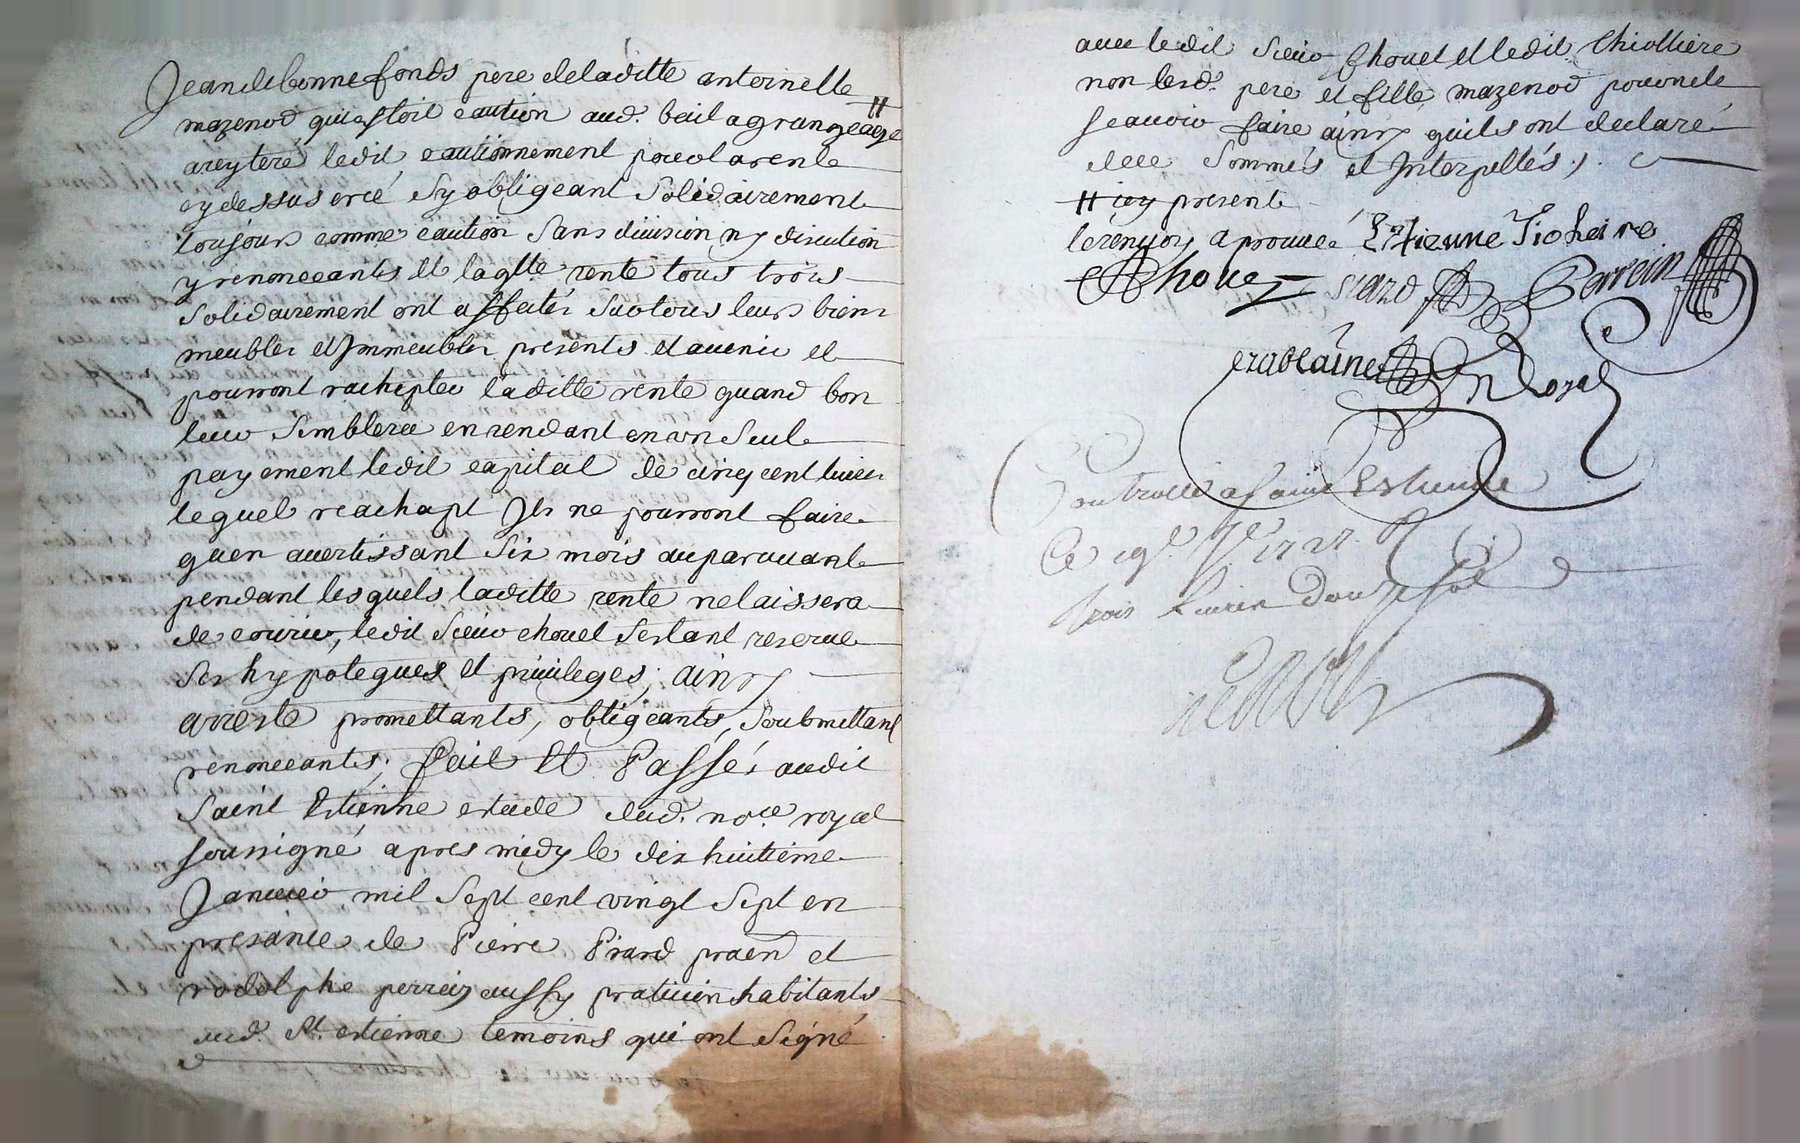 Jean de bonnefonds pere de laditte antoinette
mazenod qui estoit caution aud. bail a grangeage #
a reyteré ledit cautionnement pour la rente
cy dessus creé sy obligeant solidairement
toujours comme caution sans division ny discution
y renonceants et laqtte rente tous trois
solidairement ont affectés sur tous leurs biens
meubles et Immeubles presents et avenir et
pourront rachepter laditte rente quand bon
leur semblera en rendant en un seul
payement ledit capital de cinq cent livres
lequel reachapt Ils ne pourront faire
quen avertissant six mois auparavant
pendant lesquels laditte rente ne laissera
de courir, ledit sieur chouel sestant reservé
ses hypoteques et privileges; ainsy
arresté promettants, obligeants, soubmettant
renonceants; fait Et Passés audit
saint Estienne estude dud. nore royal
soussigné apres midy le dix huitieme
Janvier mil sept cent vingt sept en
presance de Pierre Pirard praen et
rodolphe perrein aussy praticien habitants
aud. St. estienne temoins qui ont signé
avec ledit sieur Chouel et ledit Thiolliere
non lesd. pere et fille mazenod pour ne le
scavoir faire ainsy quils ont declaré
de ce sommés et Interpellés.
# icy present
le renvoy aprouvé Estienne Tioleire
Chouel Perrein
Controllé a saint Estienne
Ce 19e
trois livres douze sols